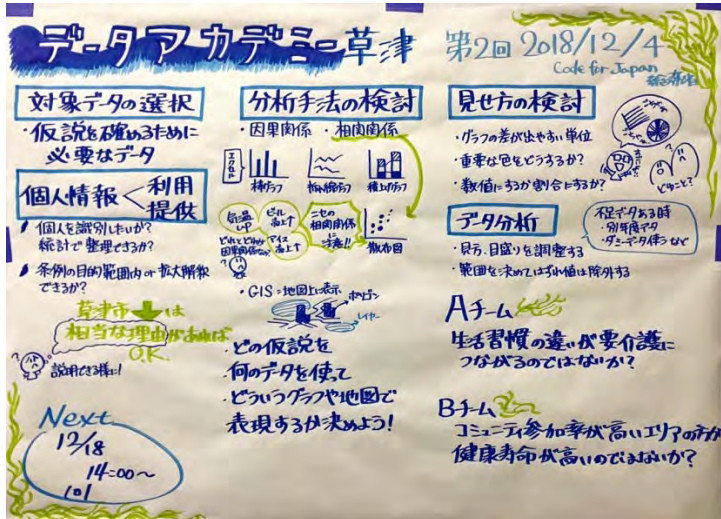 データアカデミー草津
第2回 2018/12/4
Code for Japan
対象データの選択
・仮説を確めるために
必要なデータ
個人情報<利用
提供
個人を識別したいか?
統計で整理できるか?
条例の目的範囲内or拡大解釈
できるか?
草津市は
相当な理由があれば
O.K.
説明できる様に!
Next
12/18
14:00〜
101
分析手法の検討
・因果関係 ・相関関係
エクセル
棒グラフ
折れ線グラフ
積上げグラフ
気温
UP
ビール
売上↑
アイス
売上↑
どれとどれが
因果関係なの?
ニセの
相関関係
に
注意!!
散布図
・GIS=地図上に表示
ポリゴン
レイヤー
・どの仮説を
・何のデータを使って
・どういうグラフや地図で
表現するか決めよう!
見せ方の検討
・グラフの差が出やすい単位
・重要な色をどうするか?
・数値にするか割合にするか?
どゆこと?
データ分析
・見方、目盛りを調整する
・範囲を決めてはずれ値は除外する
不足データある時
・別年度データ
・ダミーデータ使うなど
Aチーム
生活習慣の違いが要介護に
つながるのではないか?
Bチーム
コミュニティ参加率が高いエリアの方が
健康寿命が高いのではないか?